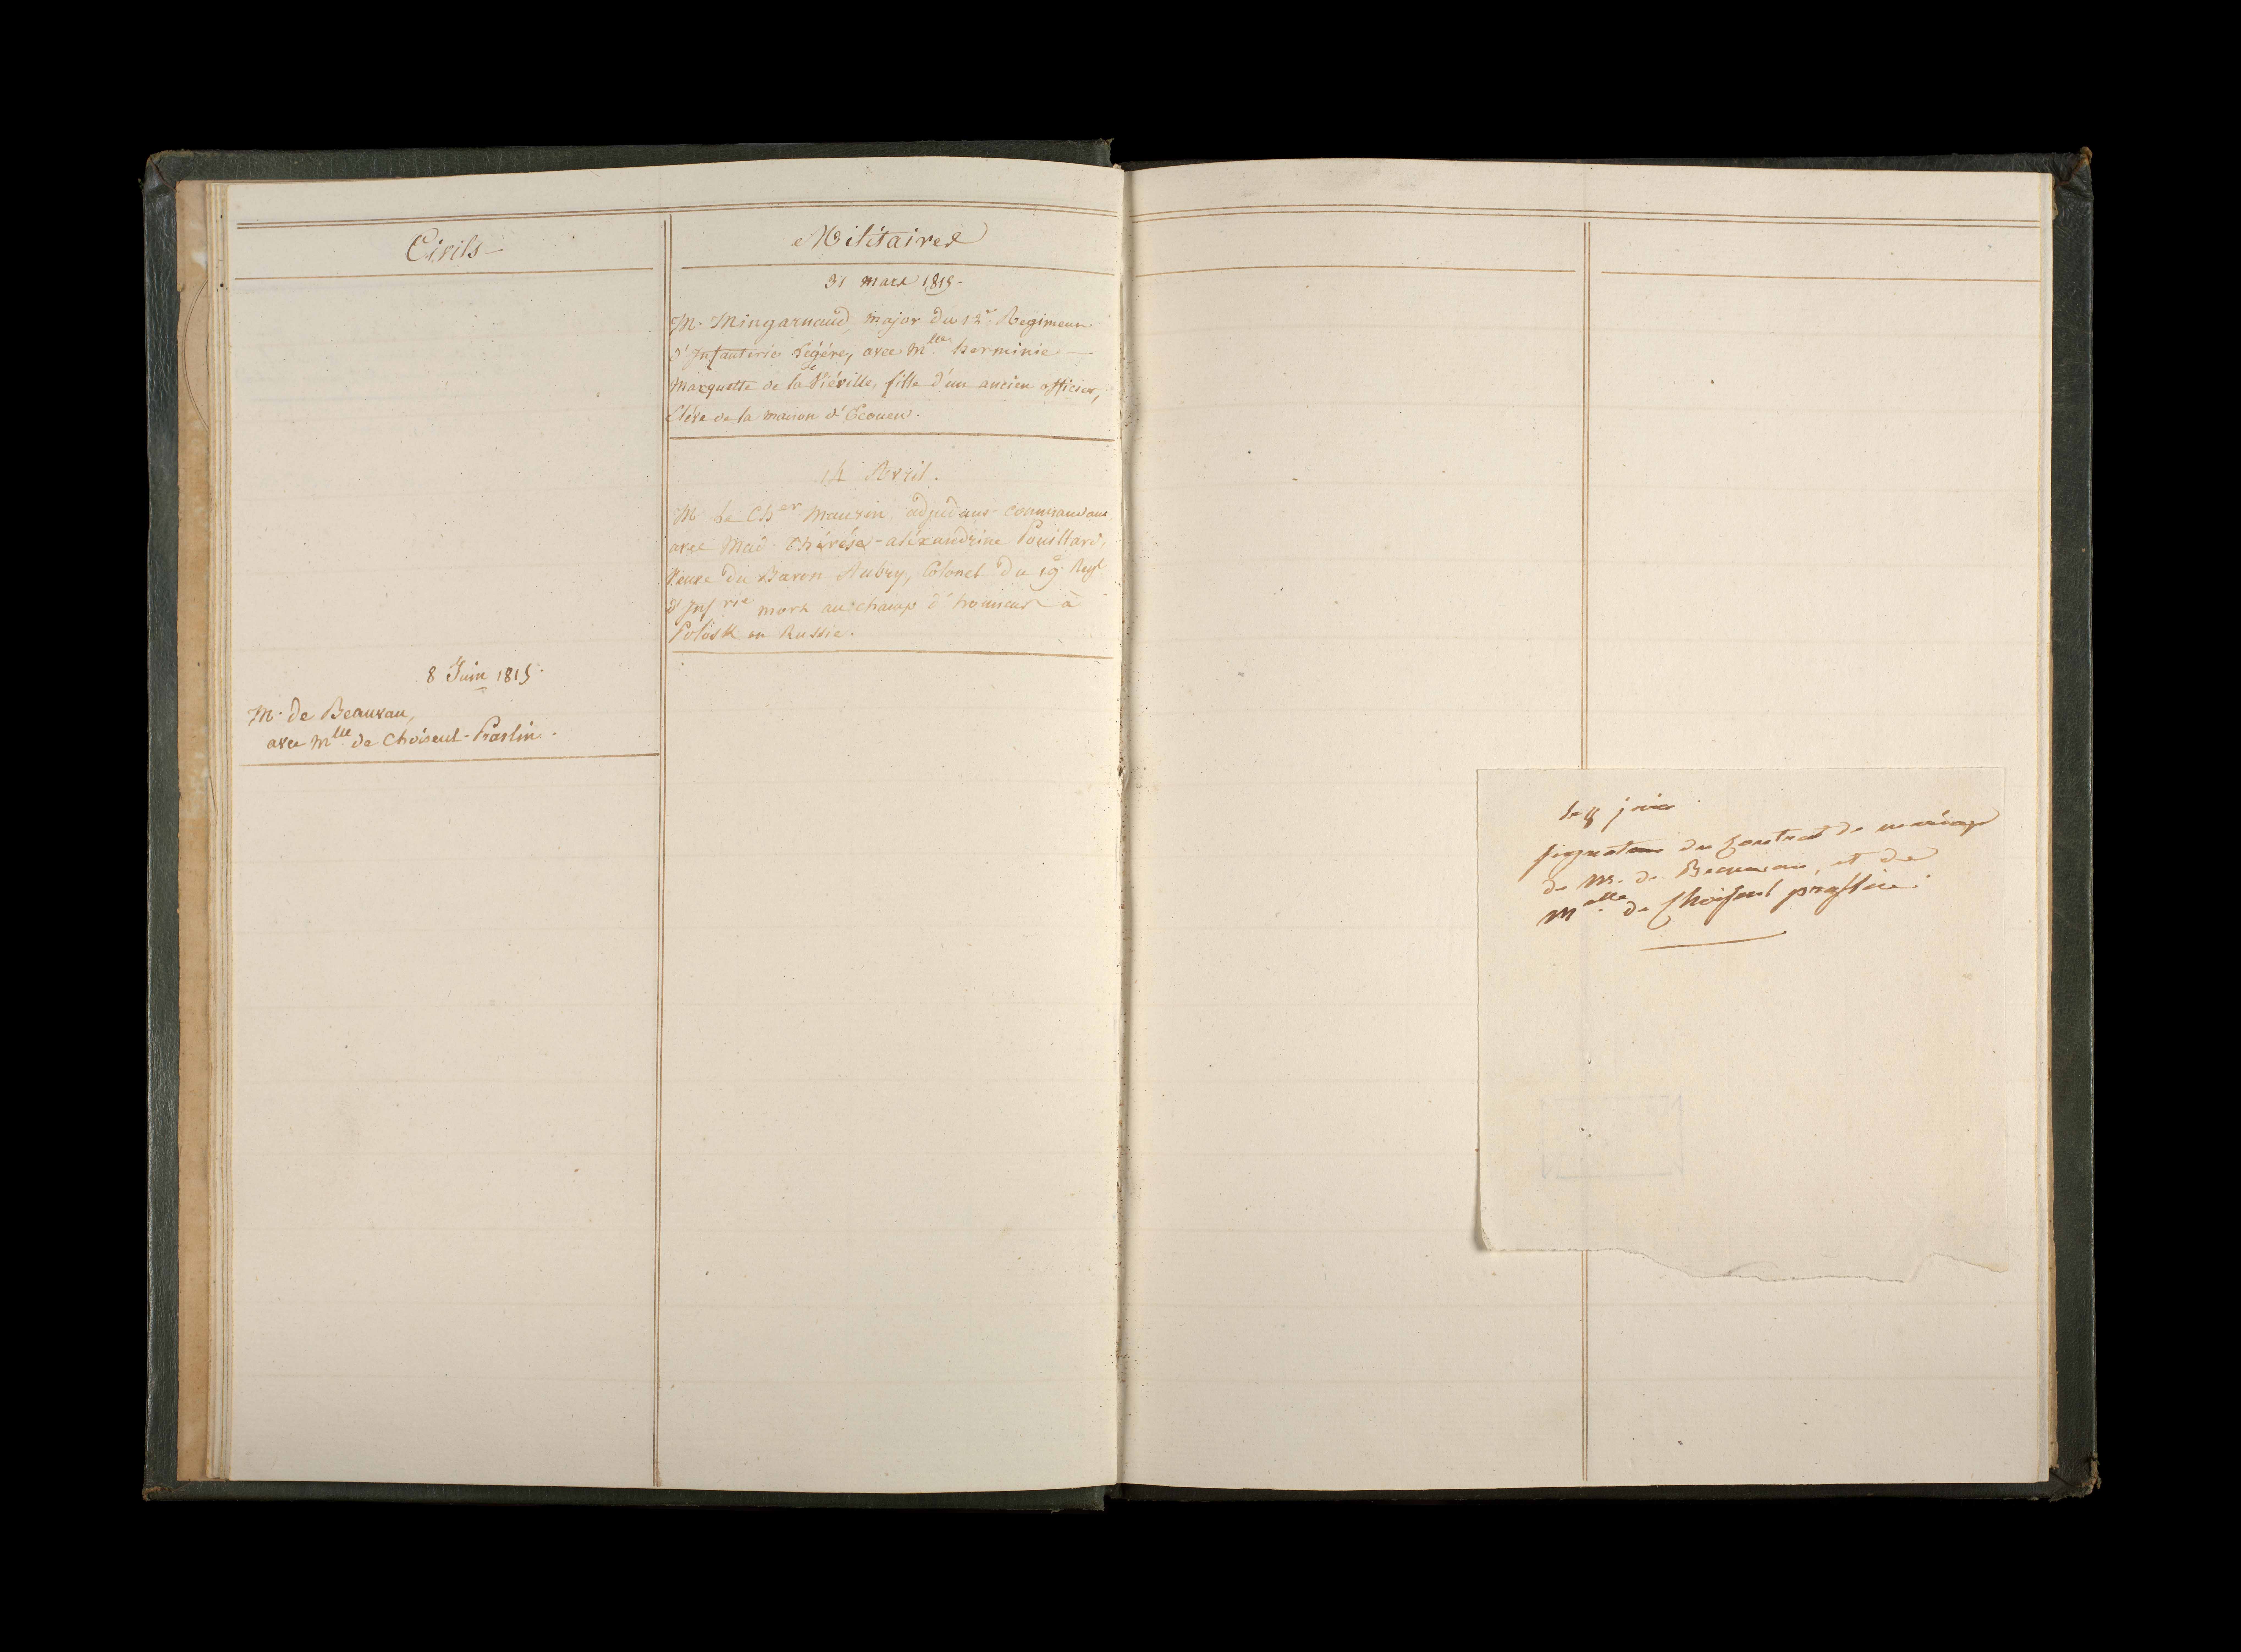 Civils
8 Juin 1815.
M. de Beauvau,
avec Mlle de Choiseul-Praslin.
Militaires
31 mars 1815.
M. Mingarnaud, major du 12e Regiment
d'Infanterie Légére, avec Mlle herminie
Marquette de la Viéville, fille d'un ancien officier,
Elève de la maison d'Ecouen.
14 Avril.
M. Le Cher Mauzin, adjudant-commandant
avec Mad. Thérése-aléxandrine Pouillard,
Veuve du Baron Aubry, Colonel du 19e Regt
d'Infrie mort au champ d'honneur à
Polosk en Russie.
le 8 juin
signature du Contrat de mariage
de M. de Beauvau, et de
Melle de Choiseul praslin.